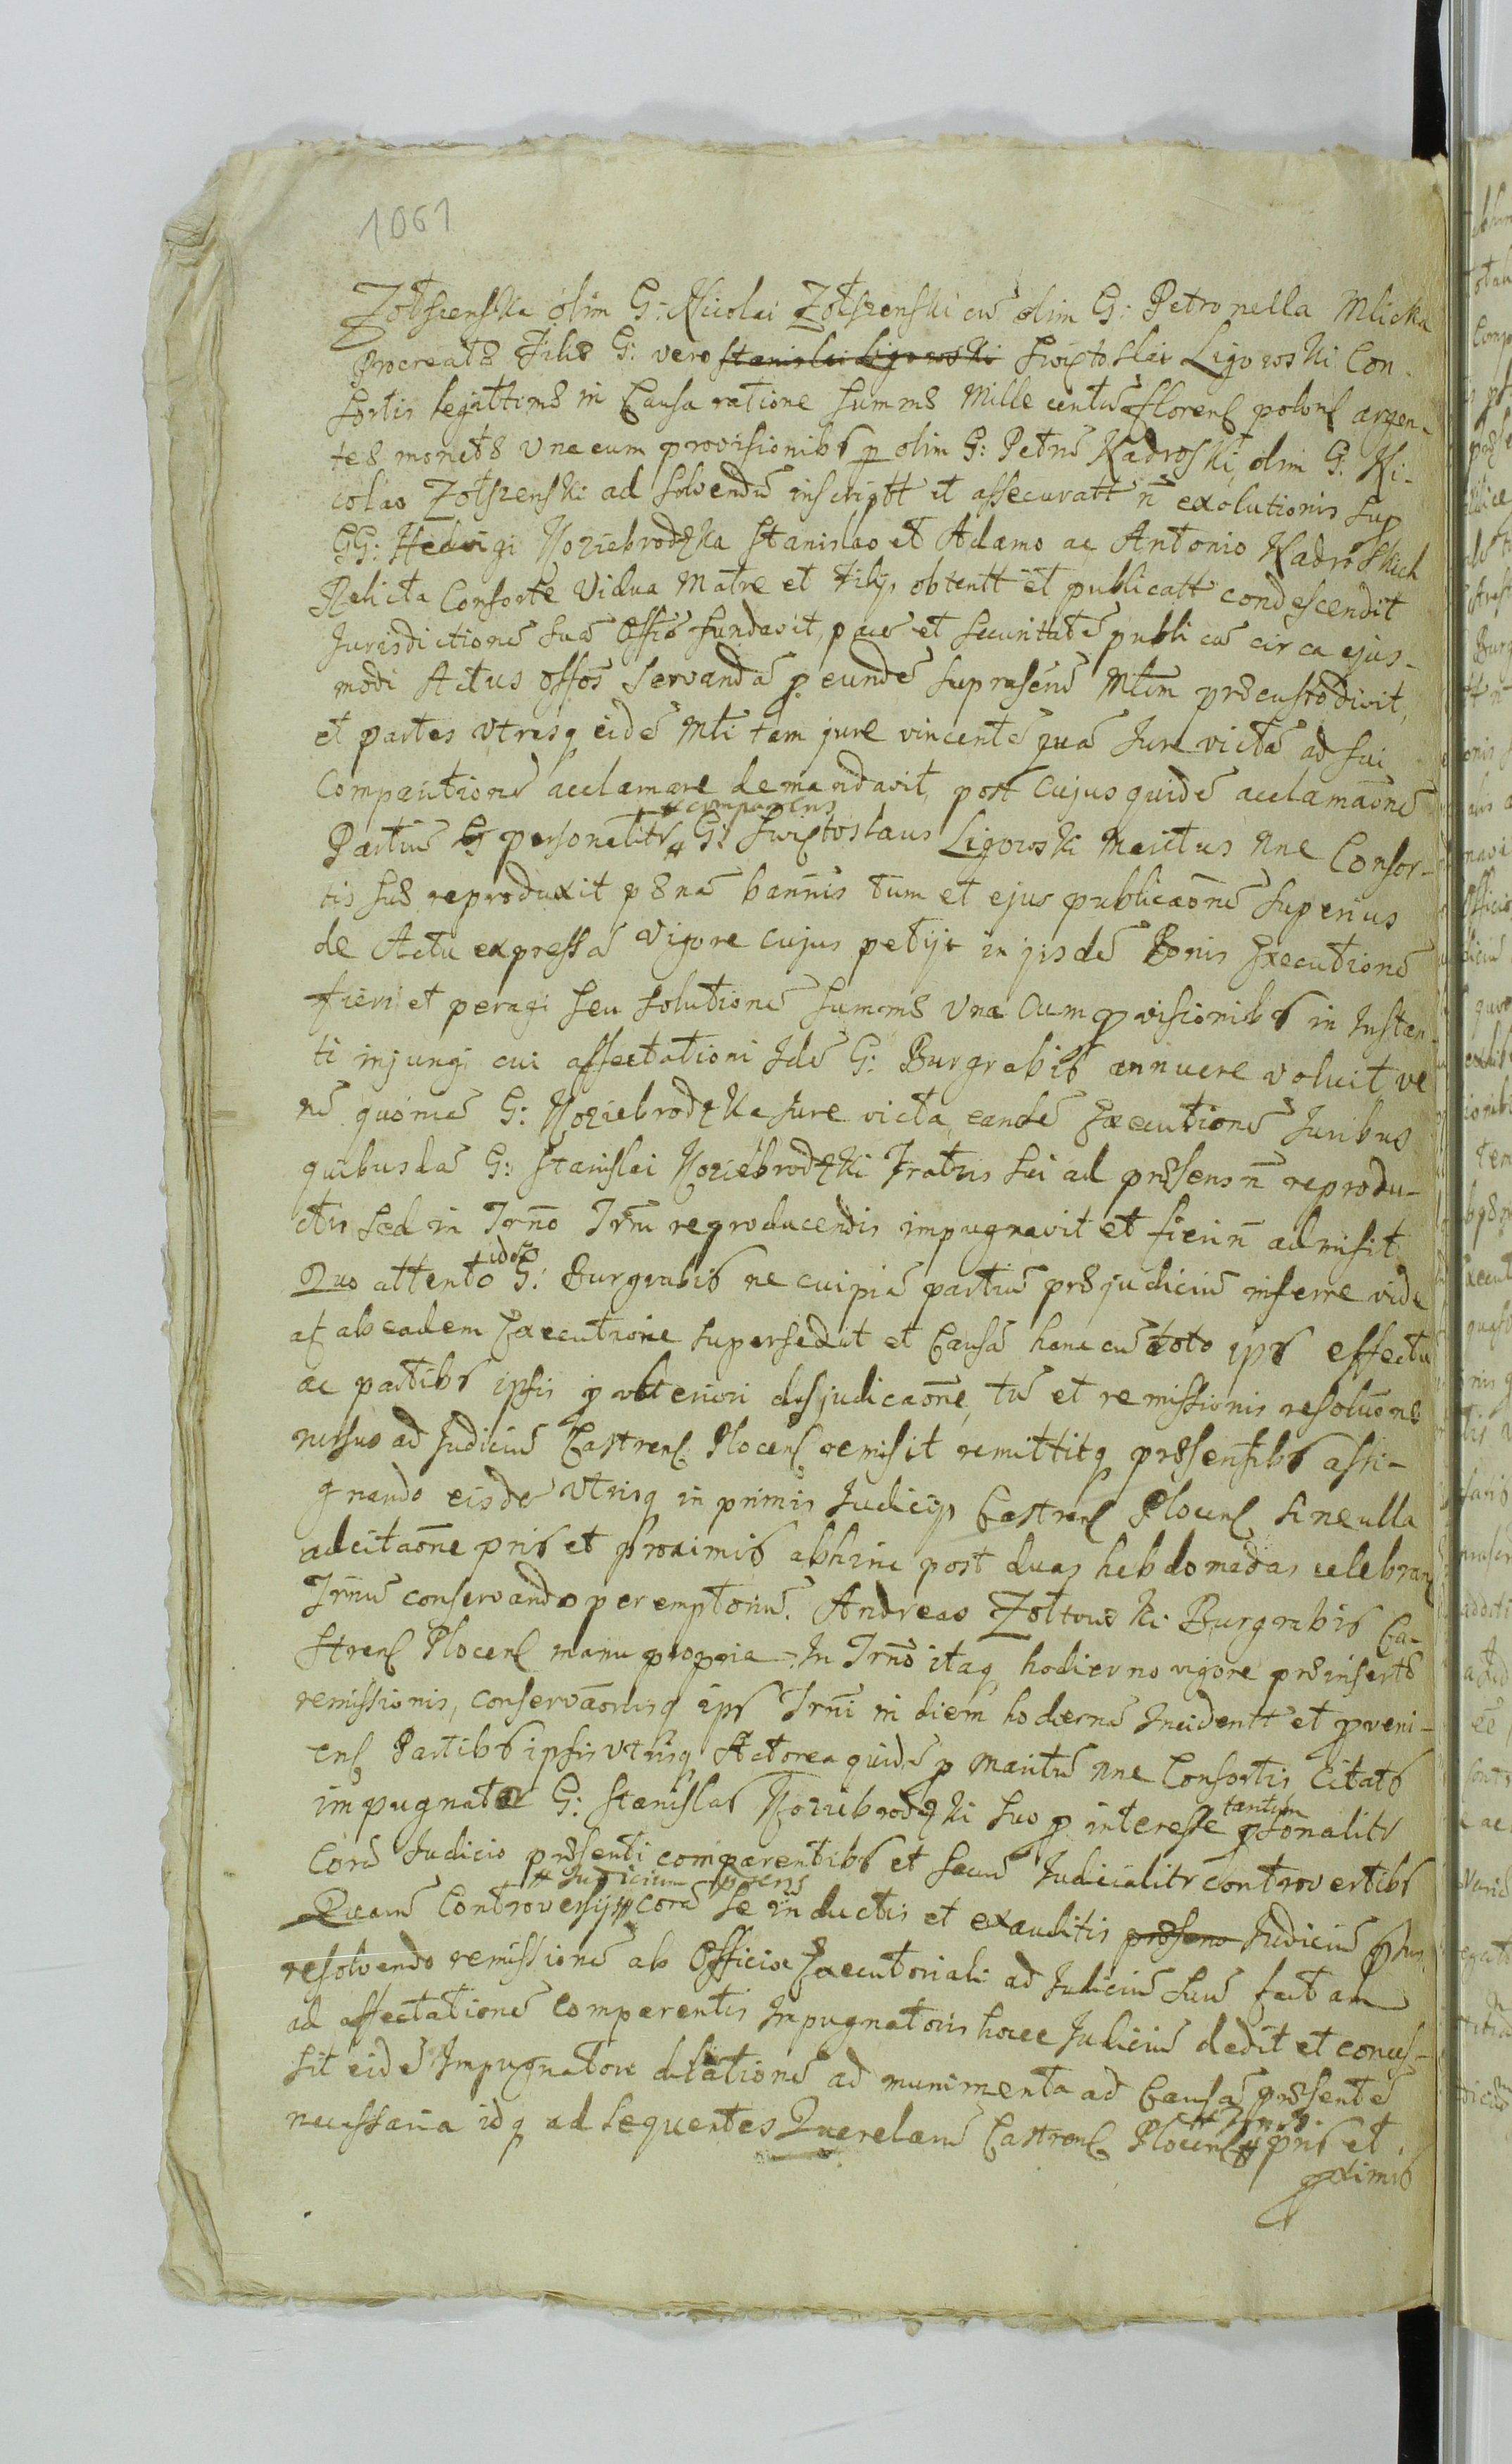 1061
Zołszenska olim G: Nicolai Zołszenski cũ olim G: Petronella Mlicka
Procreatæ Filiæ G: vero Stanislai Ligowski Swiętoslai Ligowski Con-
sortis legittimæ in Causa ratione Summæ Mille centũ florenſ polonſ argen-
teæ monetæ una cum provisionibꝰ p olim G: Petrũ Nadroski, olim G: Ni-
colao Zołszenski ad solvendũ inscriptt et assecuratt ñ exolutionis sup
GG: Hedvigi Koziebrodzka Stanislao et Adamo ac Antonio Nadroskich
Relicta Consorte Vidua Matre et Filijs obtentt et publicatt condescendit
Jurisdictionẽ suã Offiõ fundavit, pacẽ et securitatẽ publicã circa ejus-
modi Actus offos servandã p eundẽ suprasenũ Mlem præcustodivit,
et partes utrasq eidẽ Mli tam jure vincentẽ quã Jure victã ad sui
Comparitionẽ acclamare demandavit, post cujus quidẽ acclamaõnẽ
comparens
Partiũ G personalitr G: Swiętoslaus Ligowski Maritus Nne Consor-
tis suæ reproduxit pænã bannis tum et ejus publicaõnẽ superius
de Actu expressã vigore cujus petijt in ijsdẽ Bonis Executionẽ
fieri et peragi seu solutionẽ summæ una cum pvisionibꝰ in Instan-
ti injungi cui affectationi Idẽ G: Burgrabiꝰ annuere voluit ve
rũ quoniã G: Koziebrodzka Jure victa, eandẽ Executionẽ Juribus
quibusdã G: Stanislai Koziebrodzki Fratris sui ad præsens ñ reprodu-
ctis sed in Trño Trũ reproducendis impugnavit et fieri ñ admisit
idẽ
Quo attento G: Burgrabiꝰ ne cuipiã partiũ præjudiciũ inferre vide
at ab eadem Executione supersedit et Causã hanc cũ toto ipꝰ effectu
ac partibꝰ ipsis p ulteriori dijudicaõne, tũ et remissionis resoluõne
rursus ad Judiciũ Castrenſ Plocenſ remisit remittitq præsentibꝰ assi-
gnando eisdẽ utrisq in primis Judicijs Castrenſ Plocenſ sine ulla
adcitaõne priꝰ et proximiꝰ abhinc post duas hebdomadas celebran
Trñu conservando peremptoriũ. Andreas Zołtowski Burgrabiꝰ Ca-
strenſ Plocenſ manu propria. In Trño itaq hodierno vigore præinsertæ
remissionis, conservaõnisq ipꝰ Trñi in diem hodiernã Incidentt et pveni-
enſ Partibꝰ ipsis utrisq Actorea quidẽ p Maritũ Nne Consortis Citatꝰ
tantum
impugnator G: Stanislaꝰ Koziebrodzki suo p interesse psonalitr
Corã Judicio præsenti comparentibꝰ et secũ Judicialitr controvertibꝰ
Judicium præsens
Quarũ Controversijs corã se inductis et exauditis præsens Judiciũ phns
resolvendo remissionẽ ab Officio Executoriali ad Judiciũ suũ factam
ad affectationẽ comparentis Impugnatoris hocce Judiciũ dedit et conces-
sit eidẽ Impugnatori dilationẽ ad munimenta ad Causã præsentẽ
necessaria idq ad sequentes Querelarũ Castrenſ Plocenſ priꝰ et
pximiꝰ